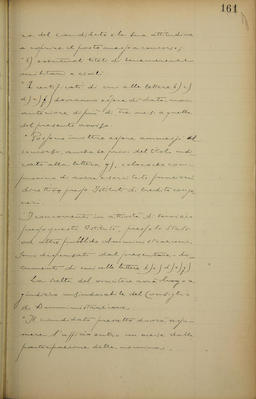 161
ca del candidato e la sua attitudine
a coprire il posto messo a concorso;
h) eventuali titoli di benemerenze
militari e civili.
"I certificati di cui alle lettere b) c)
d) e) f) dovranno essere di data non
anteriore di più di tre mesi a quella
del presente avviso.
"Possono inoltre essere ammessi al
concorso, anche se privi del titolo indi
cato alla lettera g), coloro che com
provino di avere esercitato funzioni
direttive presso Istituti di credito
I concorrenti in attività di servizio
presso questo Istituto, presso lo Stato
od altre pubbliche Amministrazioni,
sono dispensati dal presentare i do
cumenti di cui alle lettere b) c) d) e) f)
La scelta del vincitore avrà luogo a
giudizio insindacabile del Consiglio
di Amministrazione.
"Il candidato prescelto dovrà assu
mere l'ufficio entro un mese dalla
partecipazione della nomina.